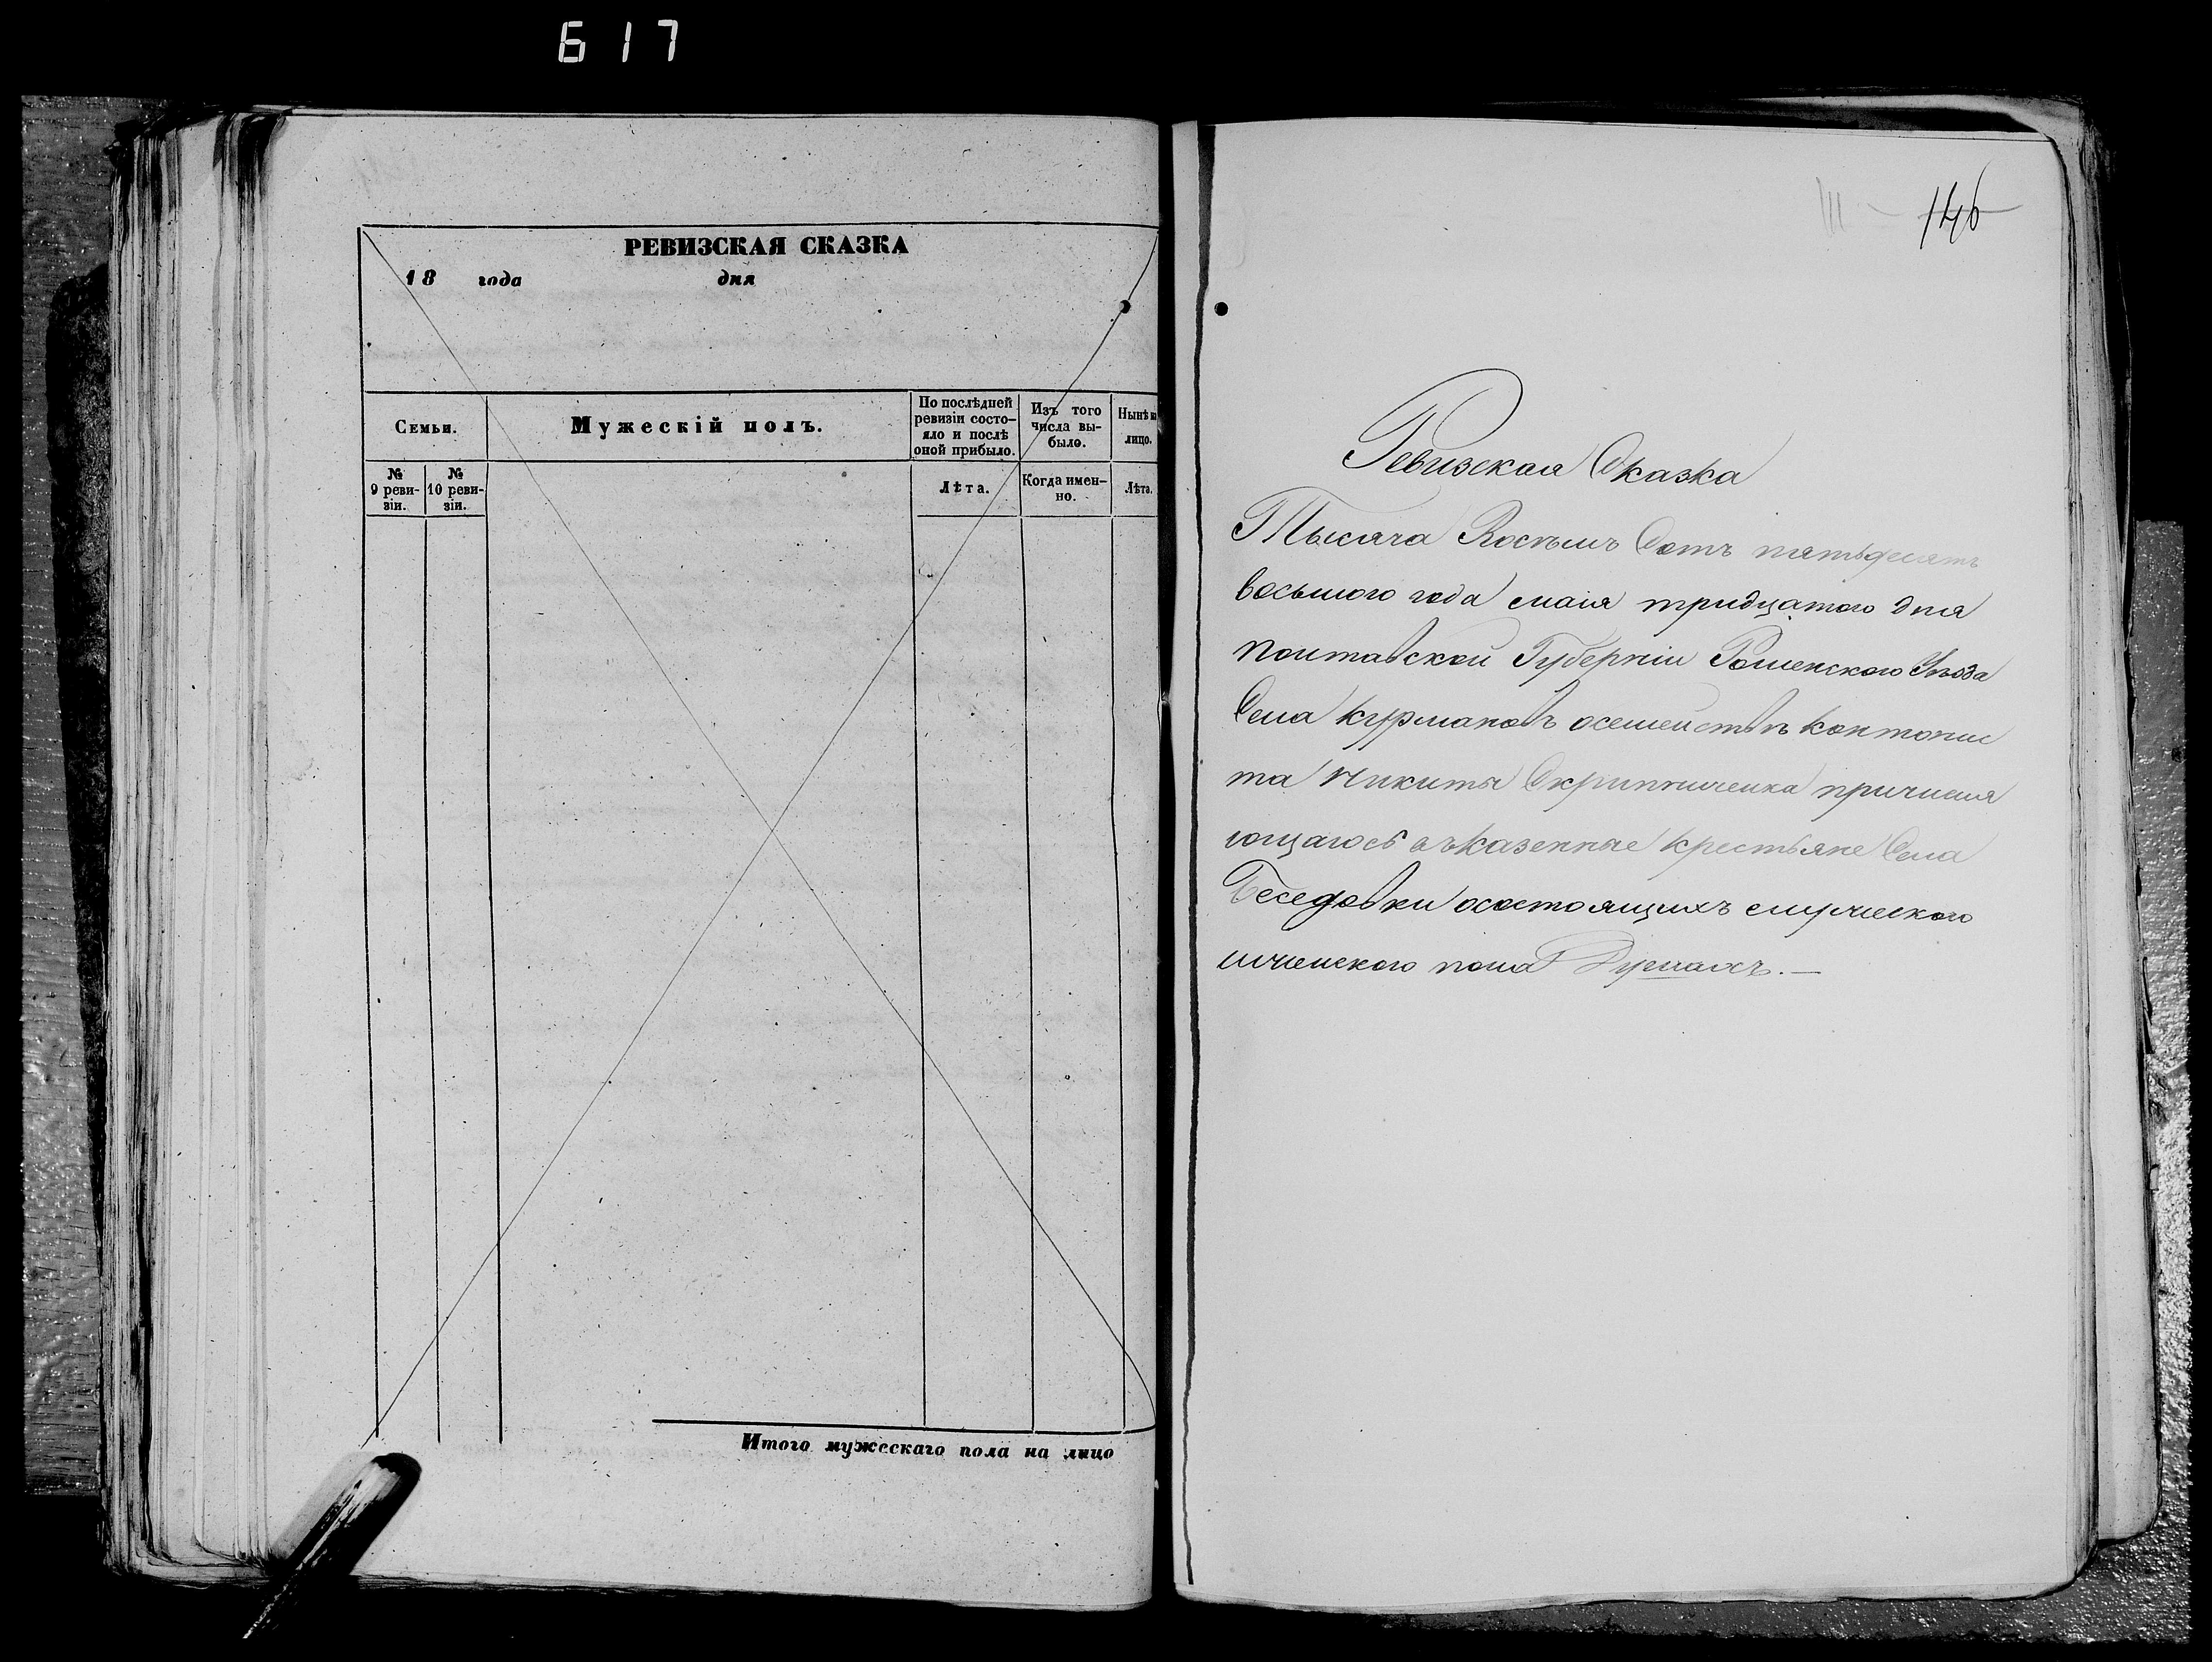 617
РЕВИЗСКАЯ СКАЗКА
18 года дня
Семьи.
Мужескій полъ.
По послѣдней
ревизіи состо-
яло и послѣ
оной прибыло.
Изъ того
числа вы-
было.
Нынѣ на
лицо.
№
9 реви-
зіи.
№
10 реви-
зіи.
Лѣта.
Когда имен-
но.
Лѣта.
Итого мужескаго пола на лицо
146
Ревизская Сказка
Тысяча Восъмъ Сотъ пятьдесятъ
восьмого года маія тридцатого дня
Полтавской Губерніи Роменского Уѣзда
Села Курмановъ осемействѣ контонис
та Никиты Скрипниченка причисля
ющагось въказенные крестьяне Села
Беседовки осостоящихъ мужеского
иженского пола Душахъ.—